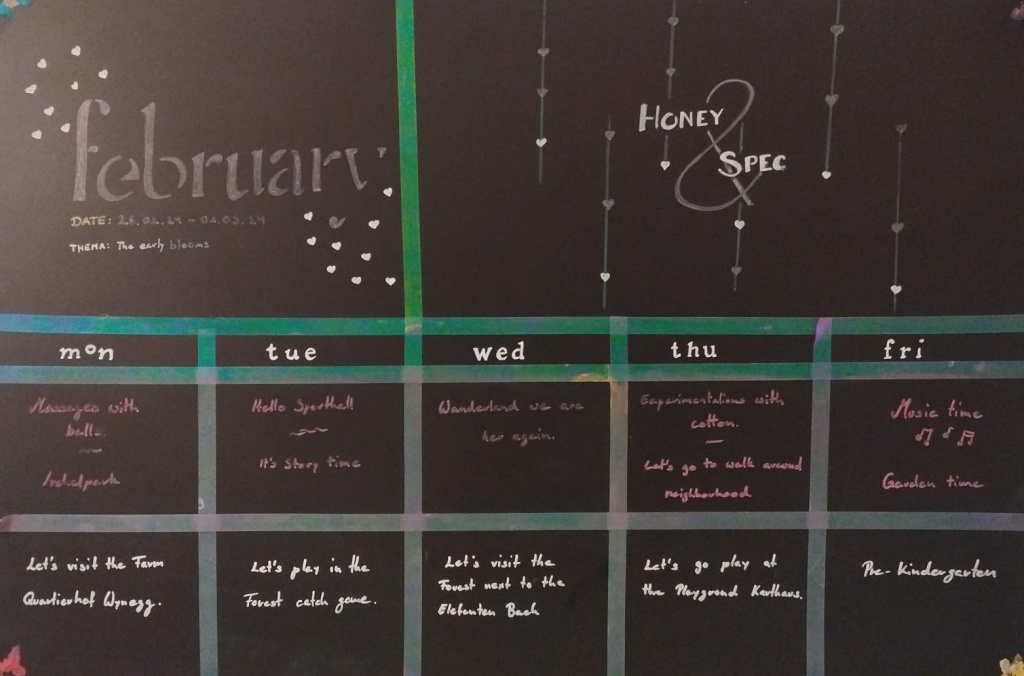 february
DATE: 26.02.24 - 04.03.24
THEMA: The early blooms
HONEY
&
SPEC
mon
tue
wed
thu
fri
Massages with
balls.
Irchelpark
Hello Sporthall
It's Story time
Wanderland we are
her again.
Experimentations with
cotton.
Let's go to walk around
neighbourhood.
Music time
Garden time
Let's visit the Farm
Quartierhof Wynegg.
Let's play in the
Forest catch game.
Let's visit the
Forest next to the
Elefanten Bach
Let's go play at
the Playground Karthaus.
Pre-Kindergarten